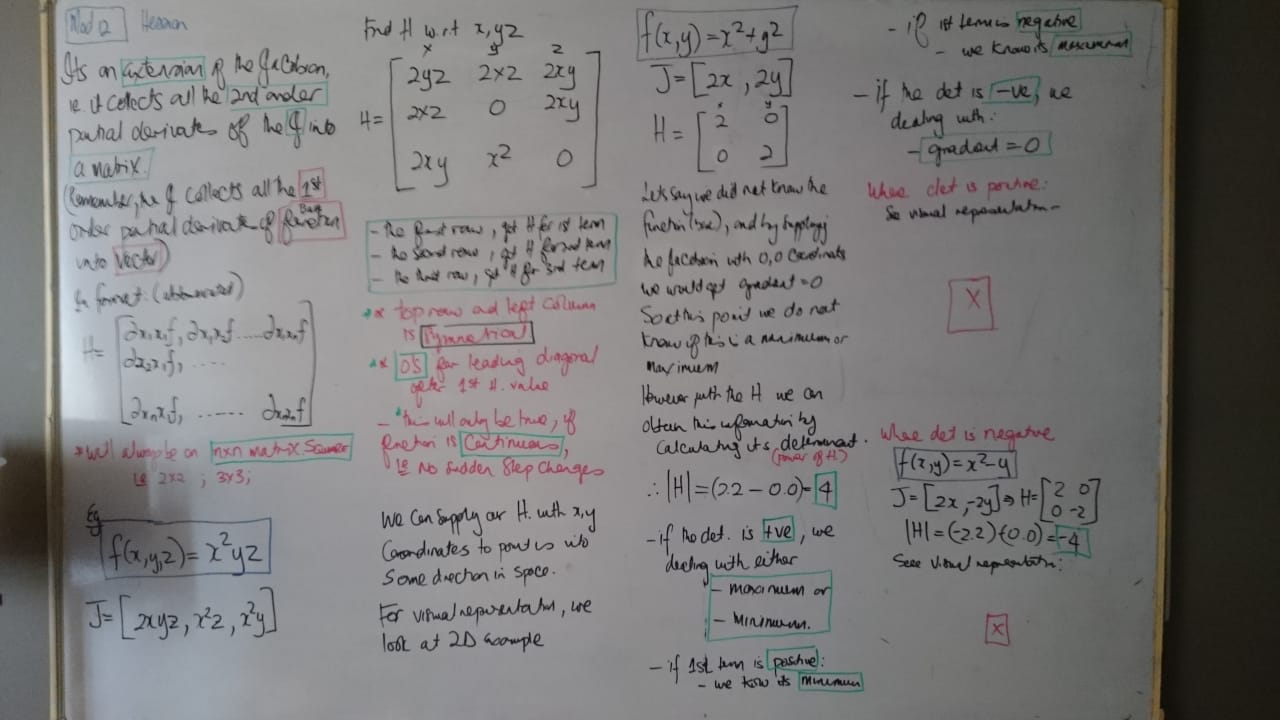 Mod 2 Hessian
Its an extension of the Jacobian,
ie it collects all the 2nd order
partial derivates of the f into
a matrix.
(Remember, the J collects all the 1st
order partial derivate of function
into vector)
In format: (abbreviated)
H= [∂x₁x₁f, ∂x₁x₂f ..... ∂x₁xₙf
∂x₂x₁f, ....
∂xₙx₁f, ...... ∂xₙxₙf]
* Will always be an nxn matrix Square
ie 2x2 ; 3x3;
Eg
f(x,y,z) = x²yz
J= [2xyz, x²z, x²y]
Find H w.r.t x,y,z
x y z
H= [2yz 2xz 2xy
2xz 0 2xy
2xy x² 0]
- the first row, get H for 1st term
- the second row, get H for 2nd term
- the third row, get H for 3rd term
** top row and left column
is symmetrical
** 0's for leading diagonal
after 1st H. value
- *this will only be true, if
function is Continuous,
ie No sudden step changes
We can supply our H. with x,y
Coordinates to point us into
Some direction in space.
For visual representation, we
look at 2D example
f(x,y) = x²+y²
J = [2x , 2y]
x y
H = [2 0
0 2]
Lets say we did not know the
function, and by supplying
the Jacobian with 0,0 Coordinates
we would get gradient = 0
So at this point we do not
know if this is a minimum or
maximum
However with the H we can
obtain this information by
Calculating its determinant.
(power of H)
∴ |H| = (2.2 - 0.0) = 4
- if the det. is +ve, we
dealing with either
- maximum or
- minimum.
- if 1st term is positive:
- we know its minimum
- if 1st term is negative
- we know its maximum
- if the det is -ve, we
dealing with:
- gradient = 0
When det is positive:
See visual representation -
X
When det is negative
f(x,y) = x²-y
J= [2x, -2y] ⇒ H= [2 0
0 -2]
|H| = (-2.2)-(0.0) = -4
See visual representation:
X